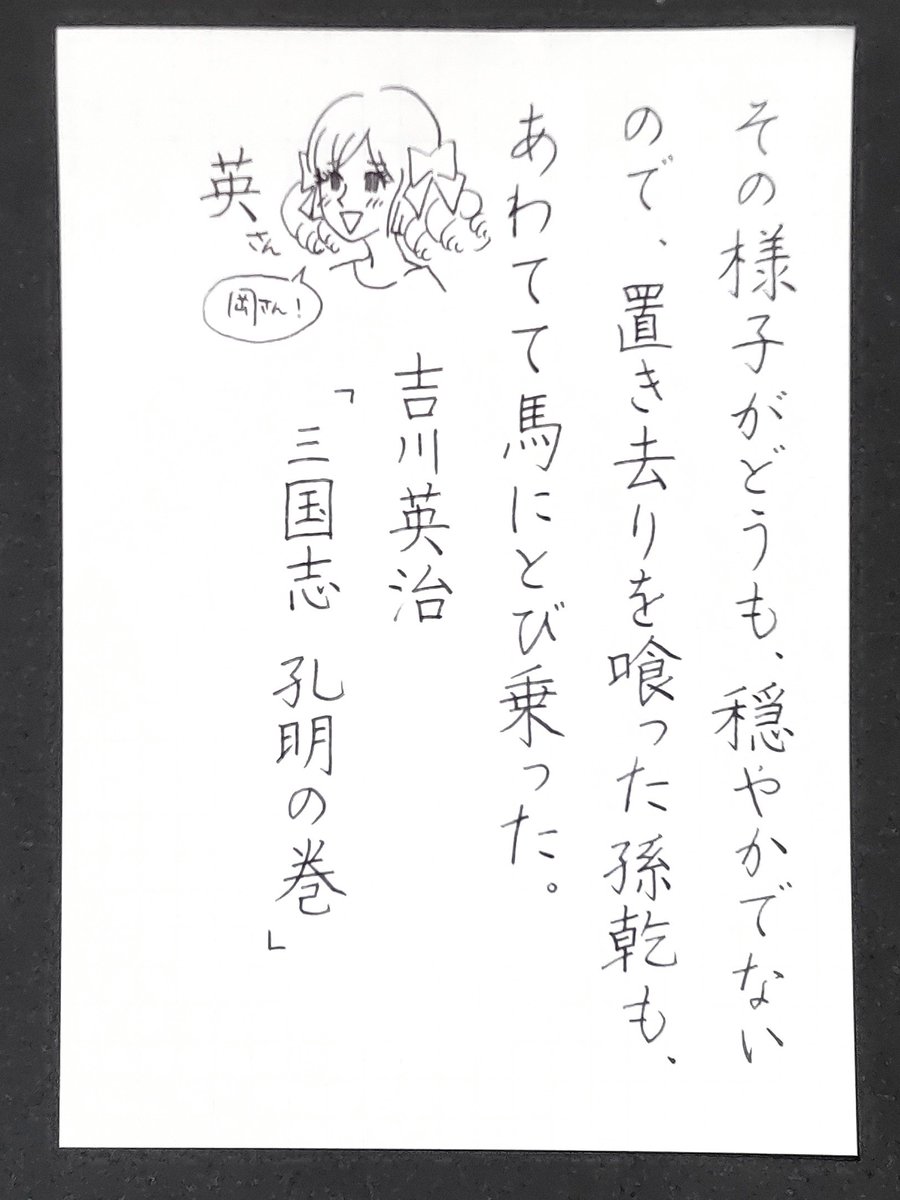 その様子がどうも、穏やかでない
ので、置き去りを喰った孫乾も、
あわてて馬にとび乗った。
吉川英治
「三国志 孔明の巻」
英さん
岡さん!